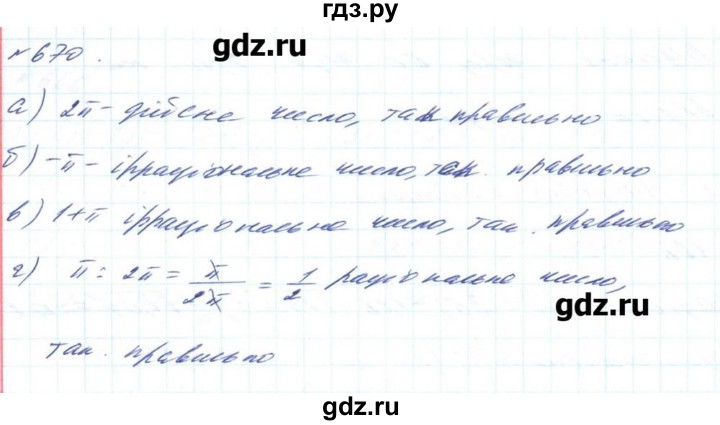 гдз.ру
gdz.ru
№ 670.
а) 2π - дійсне число, так правильно
б) -π - ірраціональне число, так. правильно
в) 1+π ірраціональне число, так. правильно
г) π : 2π = π/2π = 1/2 раціональне число,
gdz.ru
так. правильно
gdz.ru